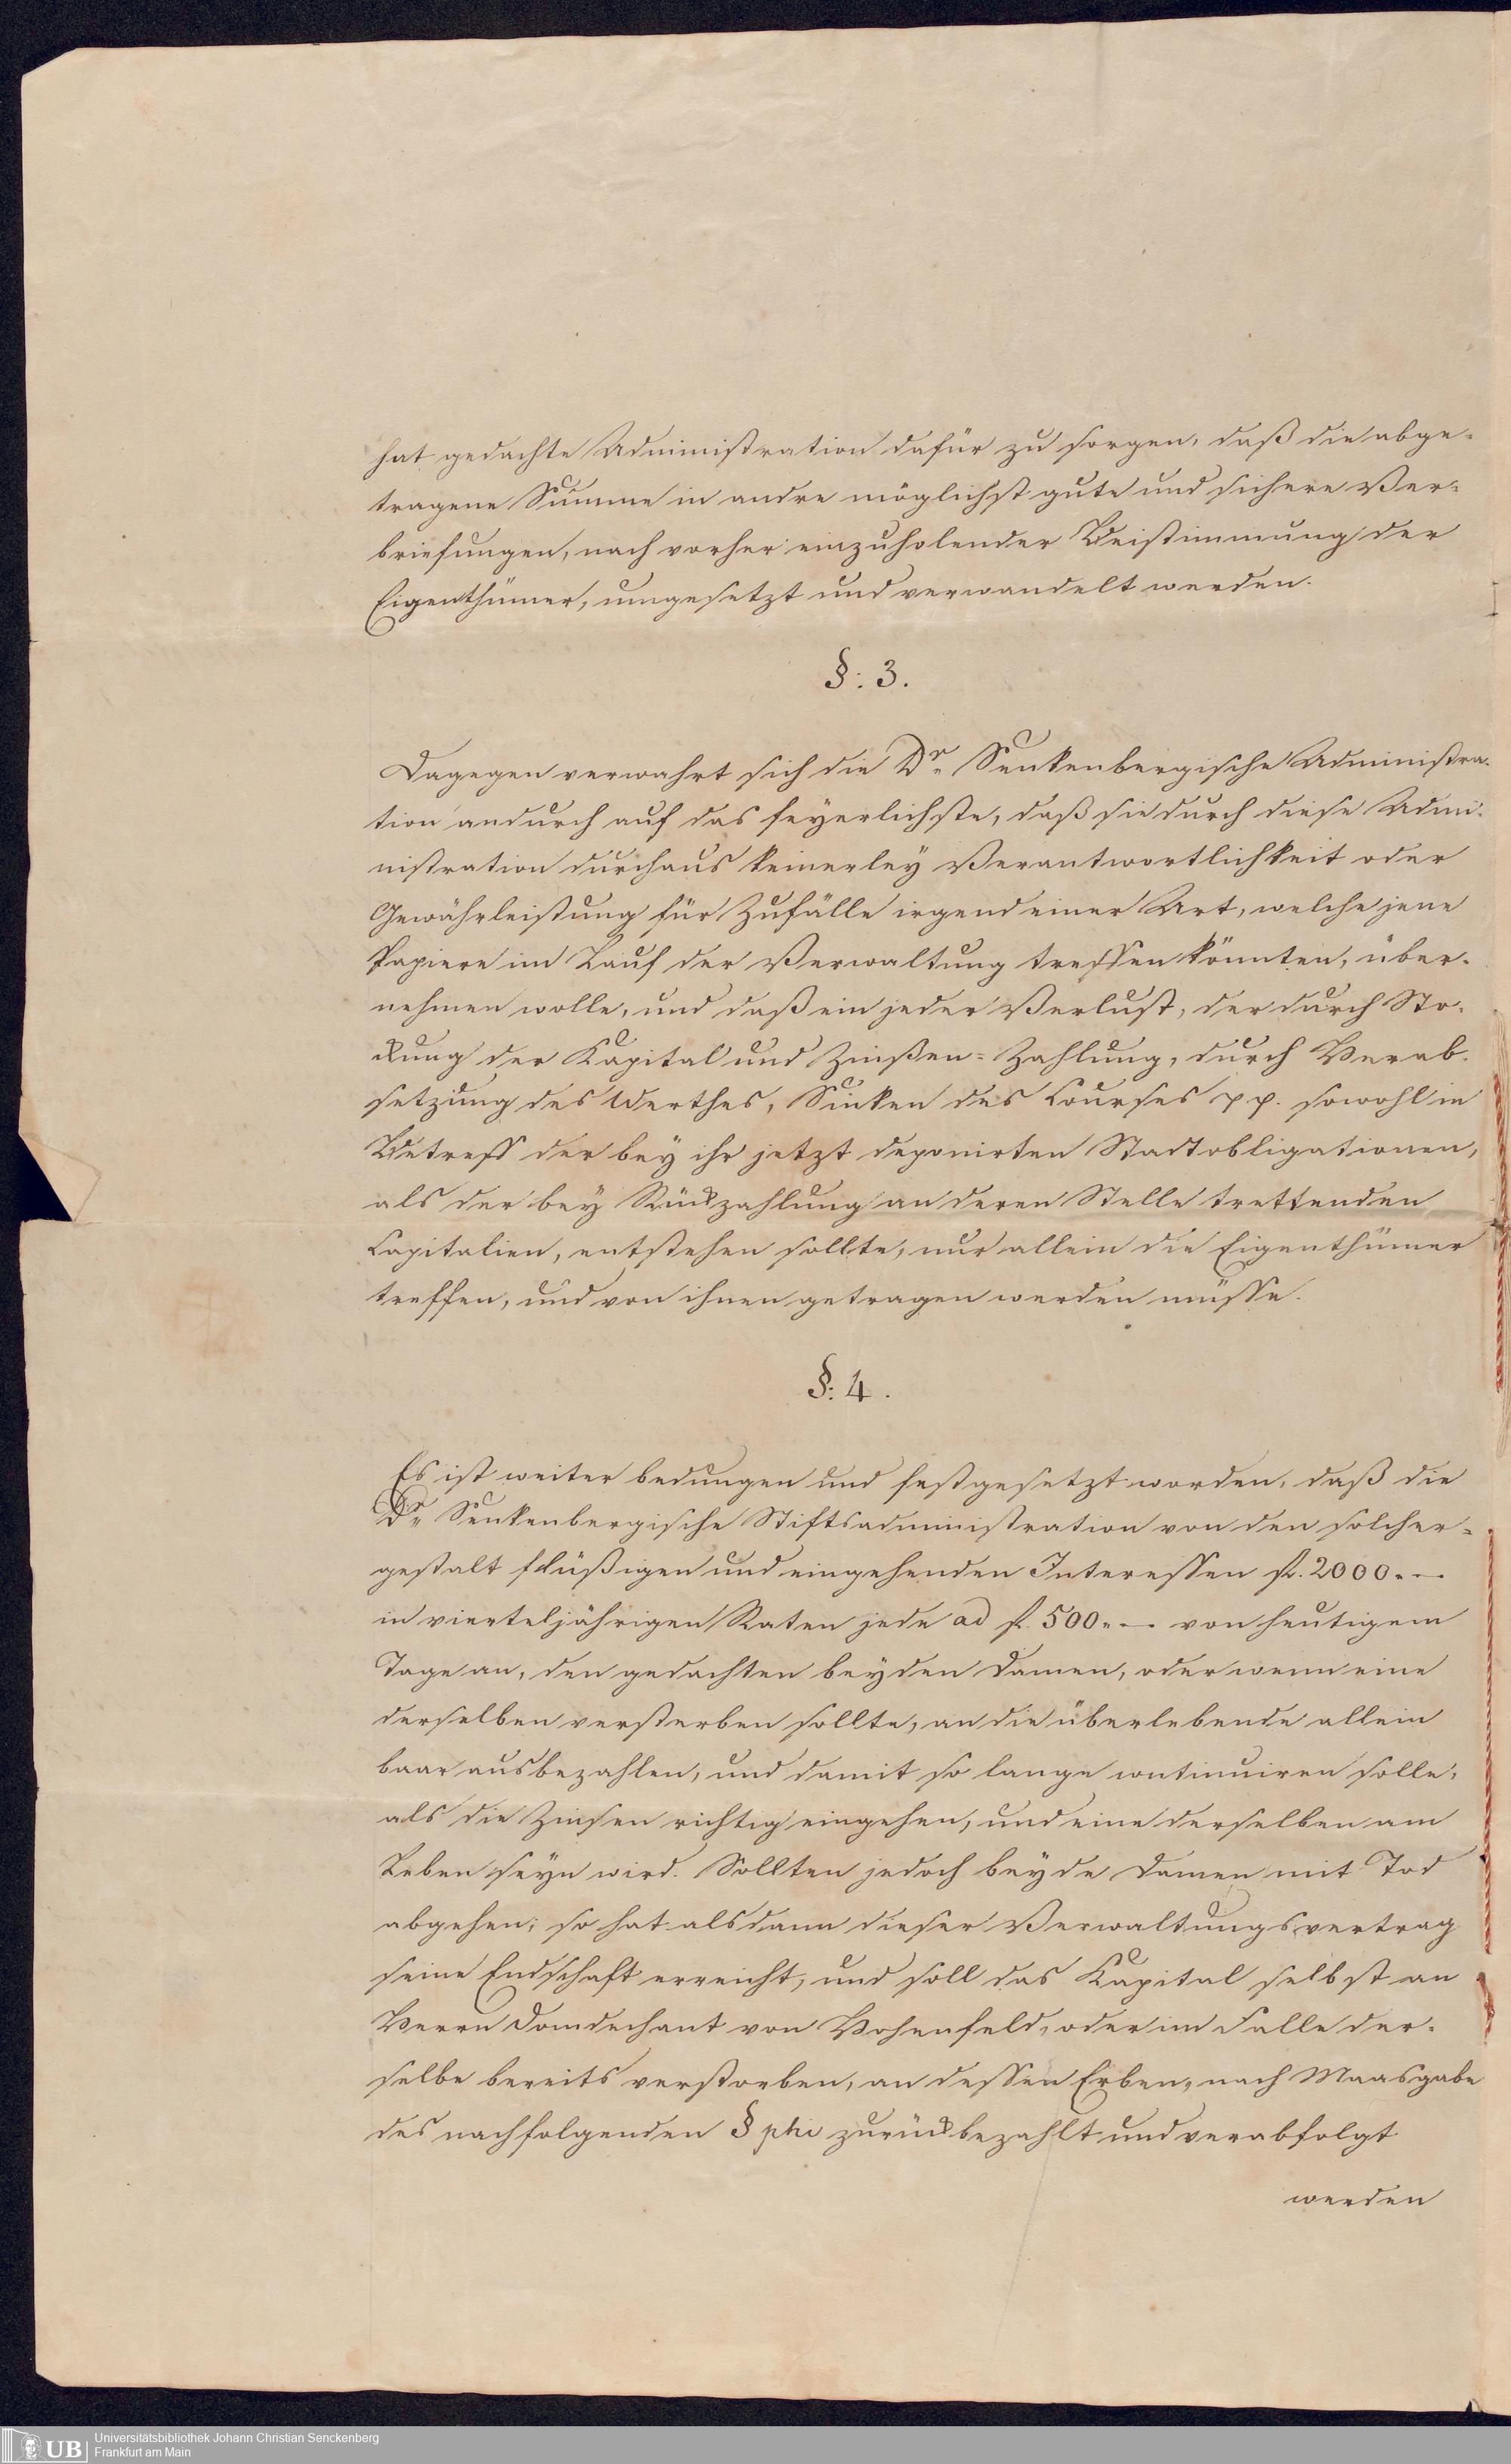 hat gedachte Administration dafür zu sorgen, daß die abge-
tragene Summe in andre möglichst gute und sichere Ver-
briefungen, nach vorher einzuholender Beistimmung der
Eigenthümer, umgesetzt und verwandelt werden.
§: 3.
Dagegen verwahrt sich die Dr. Senkenbergische Administra-
tion andurch auf das feyerlichste, daß sie durch diese Admi-
nistration durchaus keinerley Verantwortlichkeit oder
Gewährleistung für Zufälle irgend einer Art, welche jene
Papiere im Lauf der Verwaltung treffen könnten, über-
nehmen wolle, und daß ein jeder Verlust, der durch Sto-
ckung der Kapital und Zinßen-Zahlung, durch Herab-
setzung des Werthes, Sinken des Courses pp. sowohl in
Betreff der bey ihr jetzt deponirten Stadtobligationen,
als der bey Rückzahlung an deren Stelle trettenden
Capitalien, entstehen sollte, nur allein die Eigenthümer
treffen, und von ihnen getragen werden müsse.
§: 4.
Es ist weiter bedungen und festgesetzt worden, daß die
Dr. Senkenbergische Stiftsadministration von den solcher-
gestalt flüßigen und eingehenden Interessen fl. 2000.—
in vierteljährigen Raten jede ad fl. 500.— von heutigem
Tage an, den gedachten beyden Damen, oder wenn eine
derselben versterben sollte, an die überlebende allein
baar ausbezahlen, und damit so lange continuiren solle,
als die Zinsen richtig eingehen, und eine derselben am
Leben seyn wird. Sollten jedoch beyde Damen mit Tod
abgehen; so hat alsdann dieser Verwaltungsvertrag
seine Endschaft erreicht, und soll das Kapital selbst an
Herrn Domdechant von Hohenfeld, oder im Falle der-
selbe bereits verstorben, an dessen Erben, nach Maasgabe
des nachfolgenden § phi zurückbezahlt und verabfolgt
werden
UB
Universitätsbibliothek Johann Christian Senckenberg
Frankfurt am Main